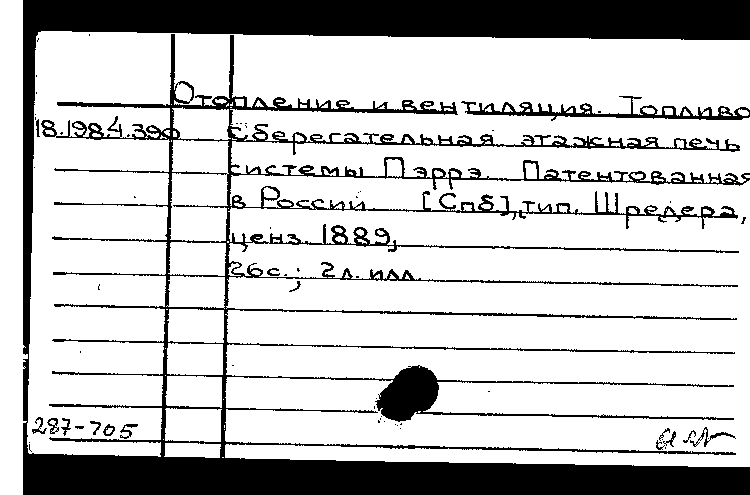 Отопление и вентиляция. Топливо
18.198.4.390 сберегательная этажная печь
системы Пэррэ. Патентованная
в России. [Спб], тип. Шредера,
ценз. 1889,
26с.; 2л. илл.
287-705